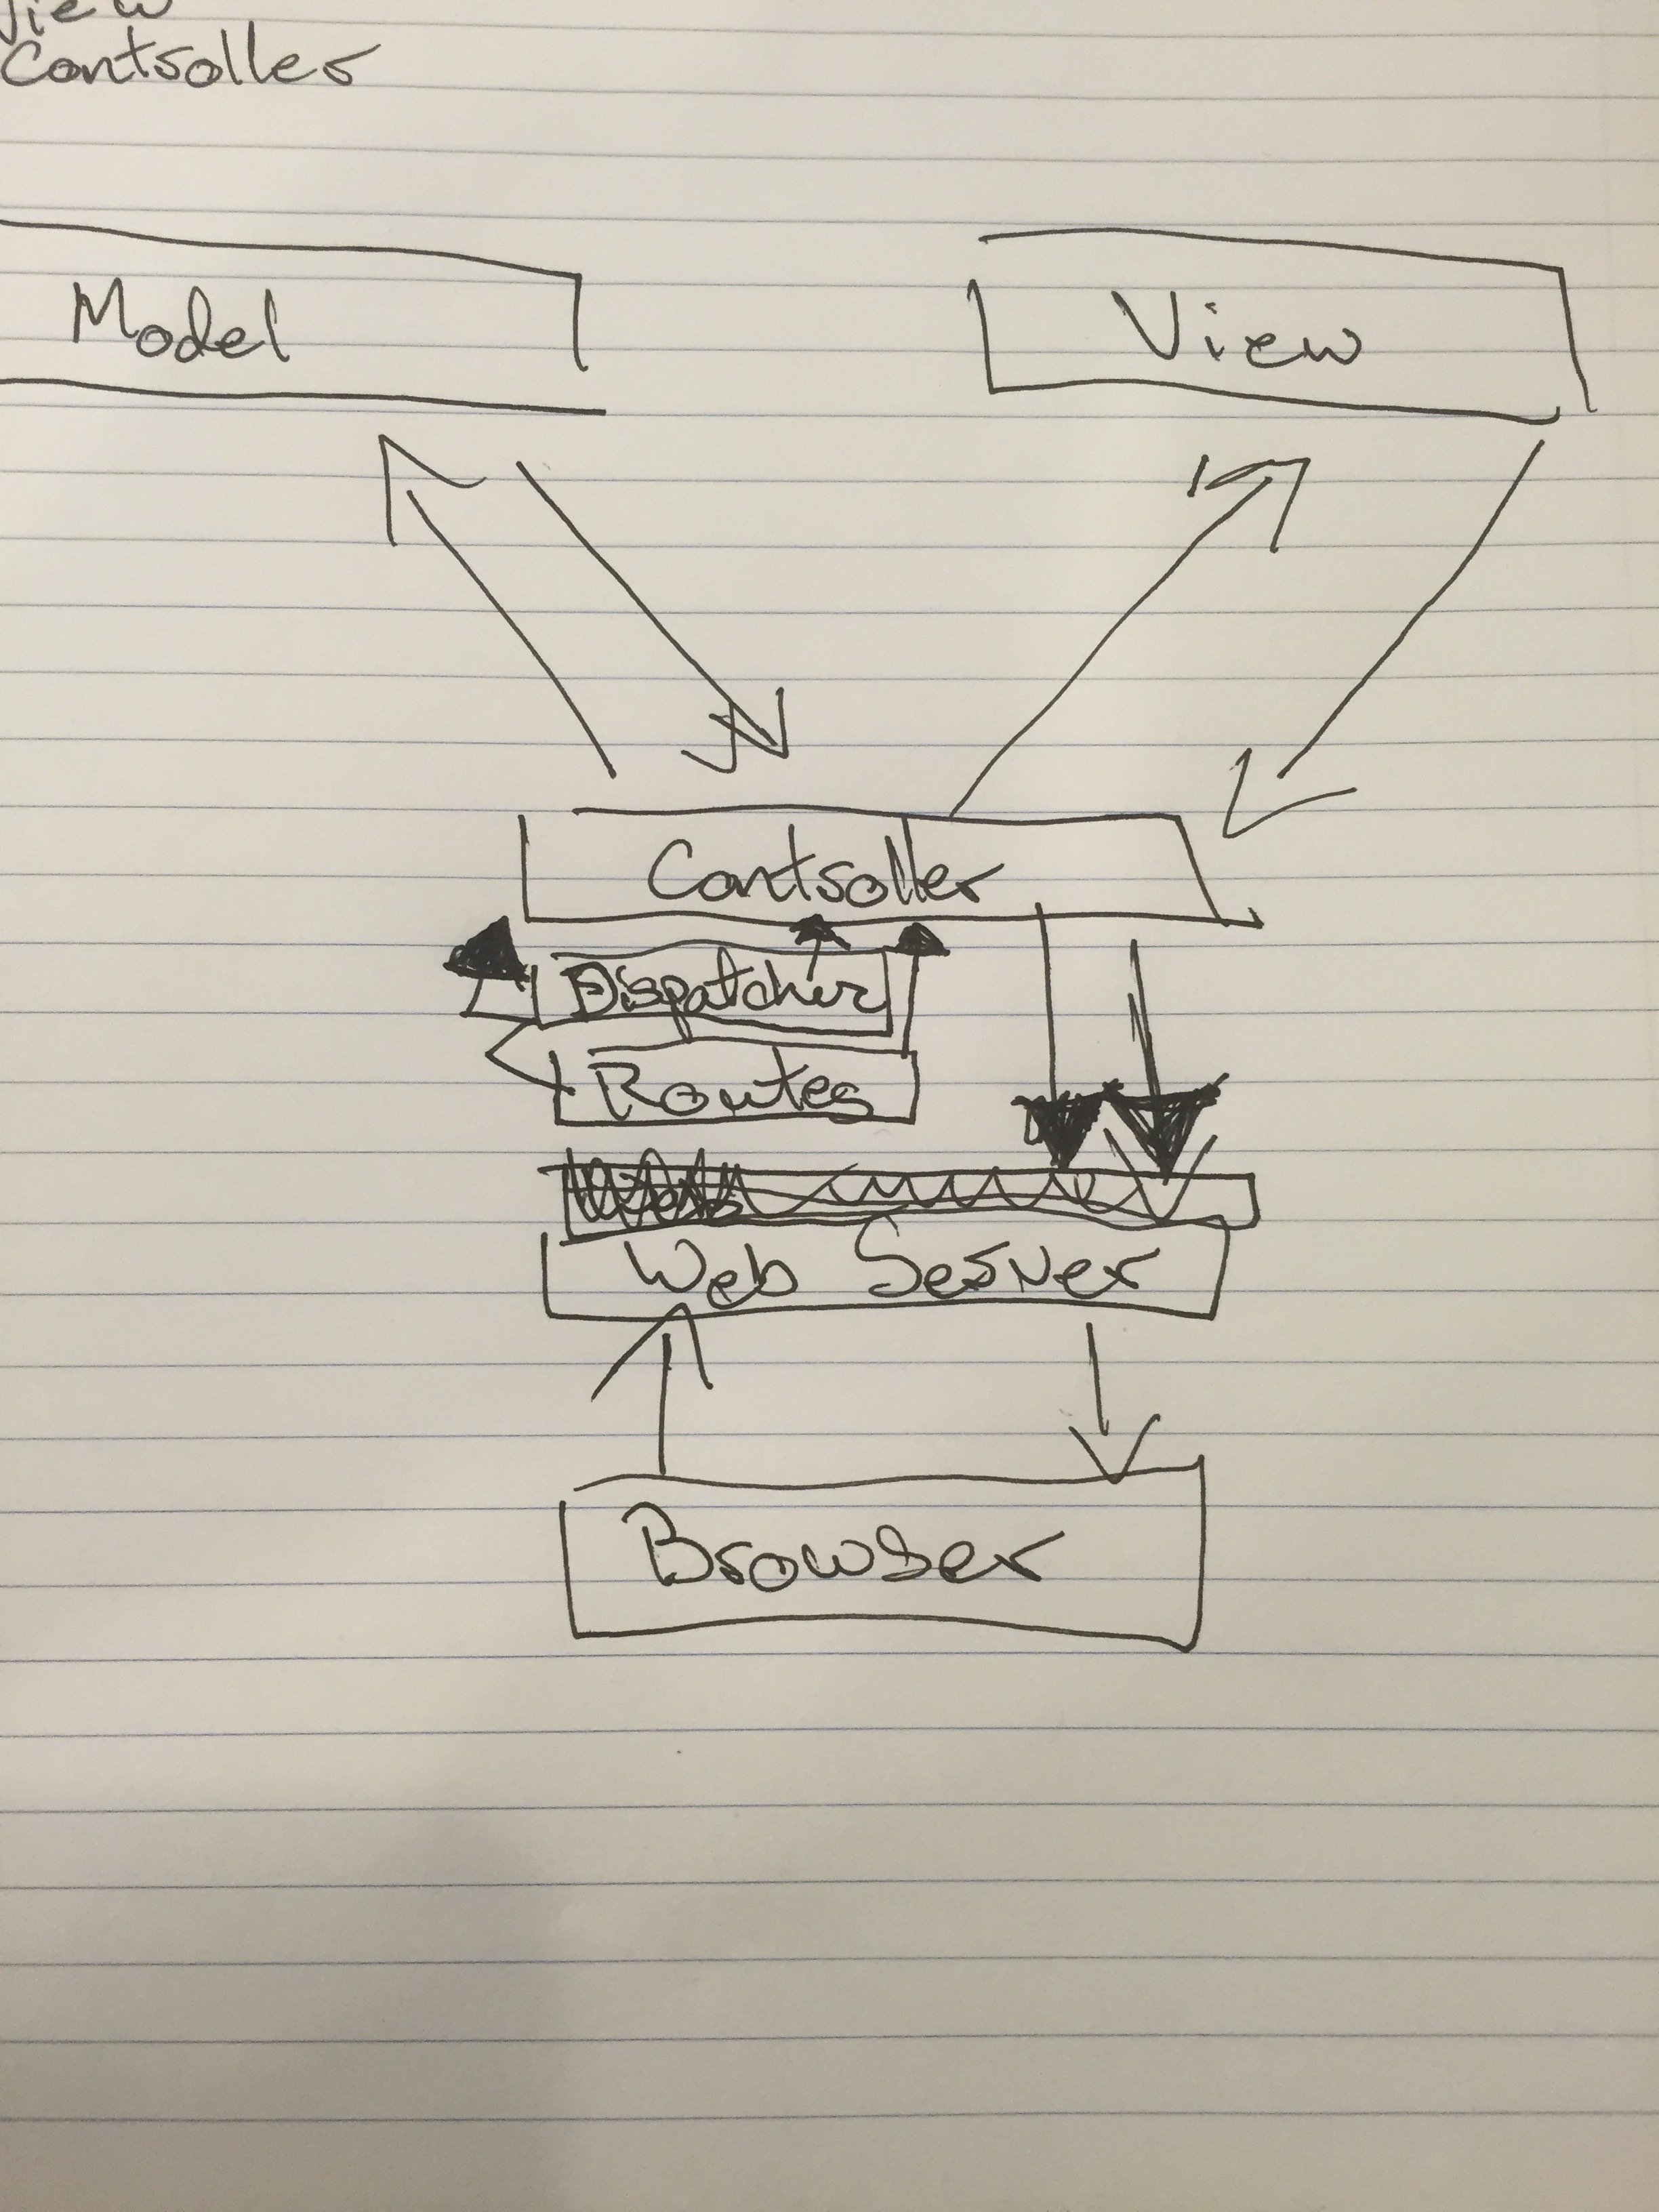 View
Controller
Model
View
Controller
Dispatcher
Routes
Web Server
Browser